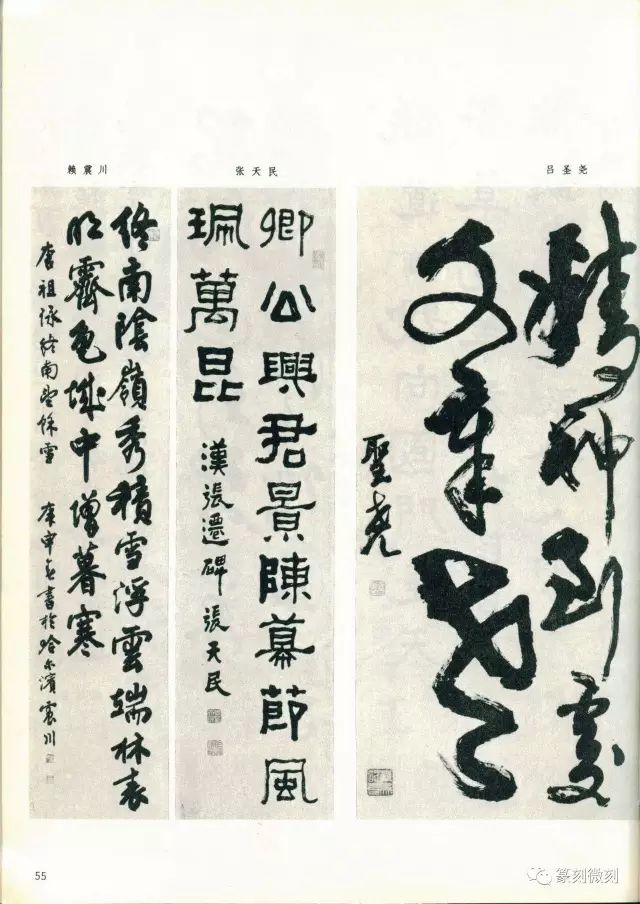 赖震川
张天民
吕圣尧
精神到處
文章老
聖堯
卿公興君景陳慕節風
珮萬昆
漢張遷碑 張天民
終南陰嶺秀積雪浮雲端林表
明霽色城中增暮寒
唐祖詠終南望餘雪 庚申書於哈尔濱震川
55
篆刻微刻